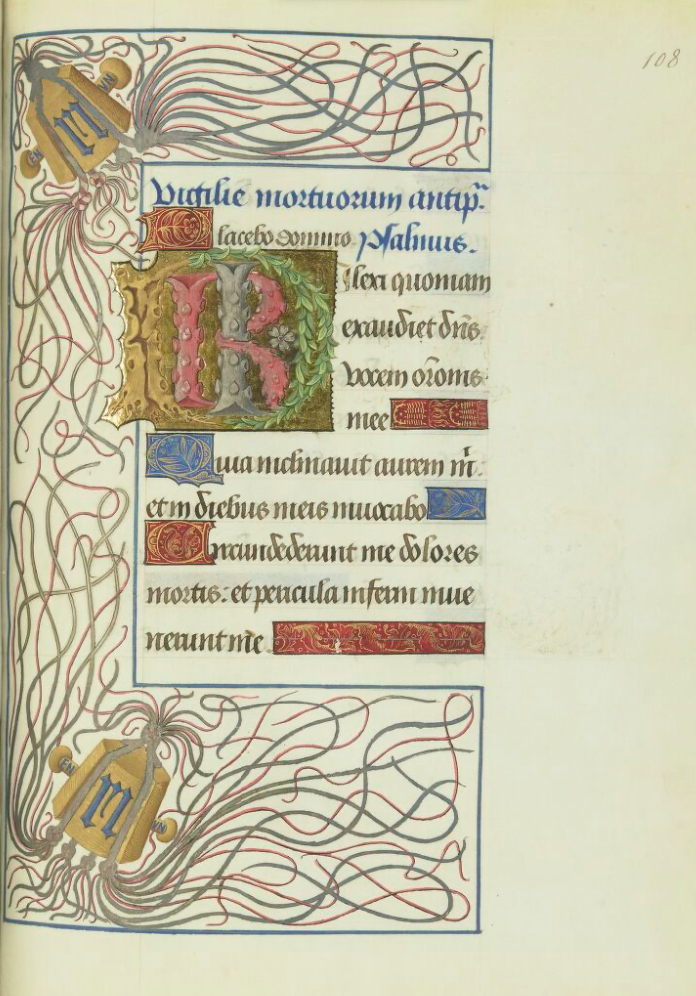 108
VN
EN
m
Vigilie mortuorum antip̃.
Placebo domino. Psalmus.
Dilexi quoniam
exaudiet dñs.
vocem or̃onis
mee
Quia inclinauit aurem m̃:
et in diebus meis inuocabo
Circundederunt me dolores
mortis: et pericula inferni inue
nerunt me
EN
m
VN